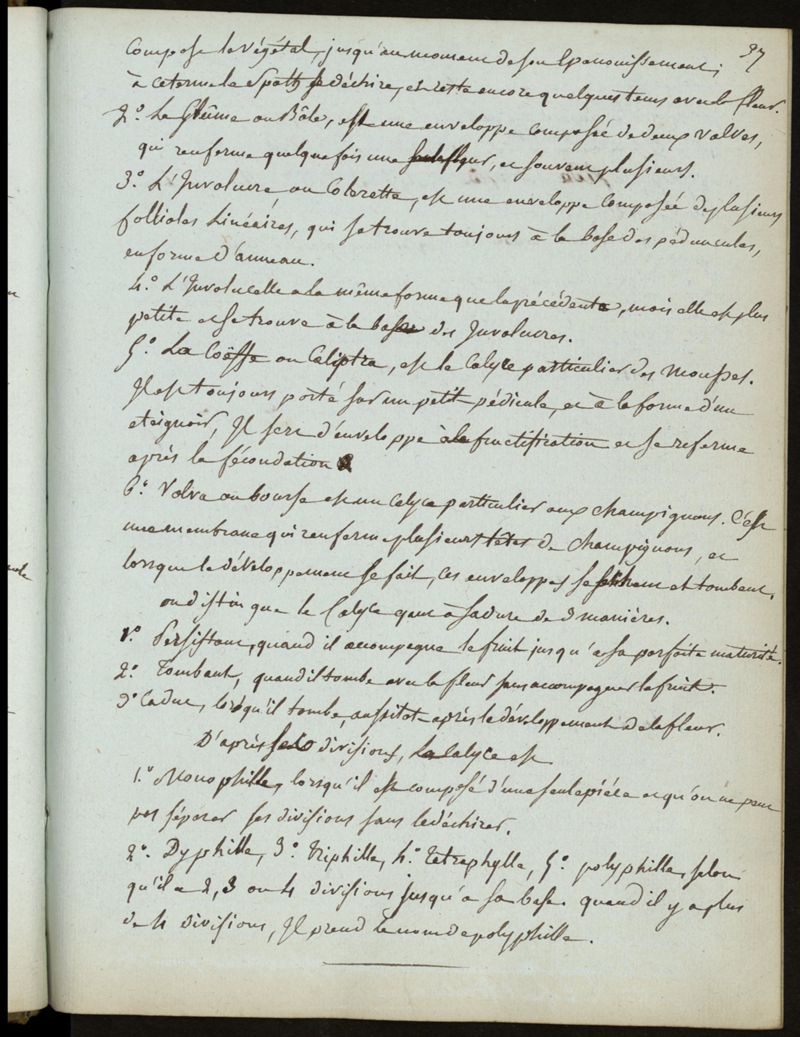 37
Compose le végétal, jusqu'au moment de son Epanouissement;
à ce terme la Spath se déchire, et reste encore quelques tems avec la fleur.
2.° La Glûme ou Bâle, est une enveloppe composée de deux valves,
qui renferme quelque fois une seule fleur, et souvent plusieurs.
3.° L'Involucre ou Colerette, est une enveloppe composée de plusieurs
folliolles Linéaires, qui se trouve toujours à la base des péduncules,
en forme d'anneau.
4.° L'Involucelle a la même forme que la précédente, mais elle est plus
petite et se trouve à la base des Involucres.
5.° La Coëffe ou Caliptra, est le Calyce particulier des Mousses.
Il est toujours porté sur un petit pédicule, et à la forme d'un
eteignoir, Il sert d'enveloppe à la fructification et se referme
après la fécondation
6.° Volva ou bourse est un Calyce particulier aux champignons. C'est
une membrane qui renferme plusieurs têtes de champignons, et
lorsque le développement se fait, ces enveloppes se et tombent.
on distingue le Calyce quant à sa durée de 3 manières.
1.° Persistant, quand il accompagne le fruit jusqu'a sa parfaite maturité.
2.° Tombant, quand il tombe avec la fleur sans accompagner le fruit.
3° Caduc, lorsqu'il tombe, aussitot après le développement de la fleur.
D'après ses divisions, le Calyce est
1.° Monophille, lorsqu'il est composé d'une seule pièce et qu'on ne peut
pas séparer ses divisions sans le déchirer.
2.° Dyphille, 3.° Triphille, 4.° Tetraphylle, 5.° polyphille, selon
qu'il a 2, 3 ou 4 divisions jusqu'a sa base. quand il y a plus
de 4 divisions, Il prend le nom de polyphille.